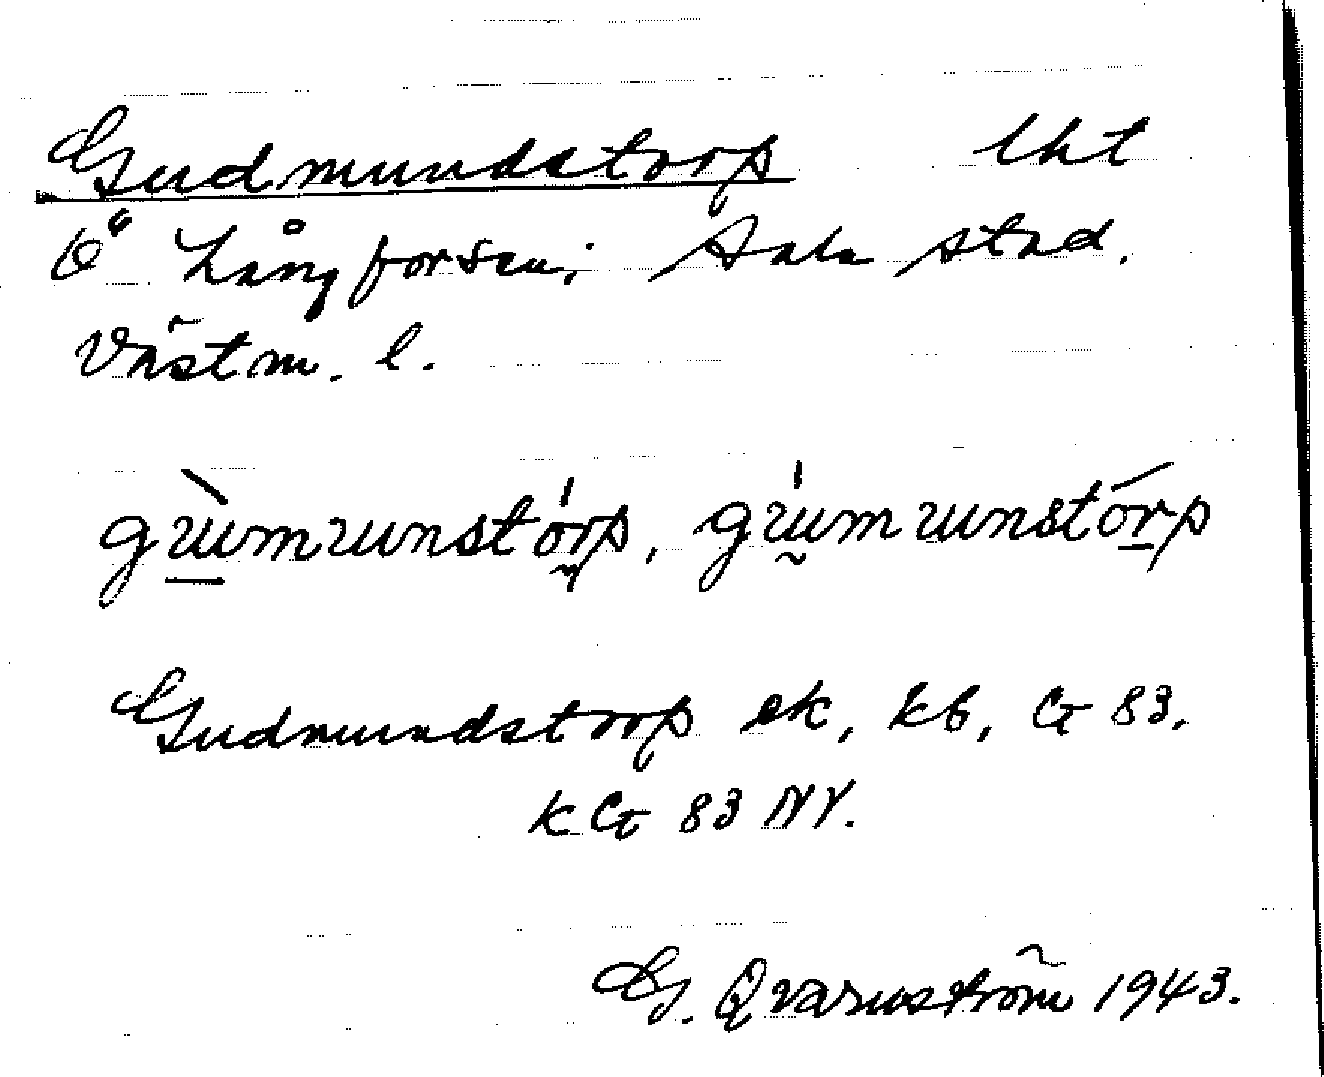 Gudmundstorp lht
Ö Långforsen, Sala stad.
Västm. l.
gùmunstórp, gúmunstórp
Gudmundstorp ek, kb, G 83.
KG 83 NV.
G. Qvarnström 1943.